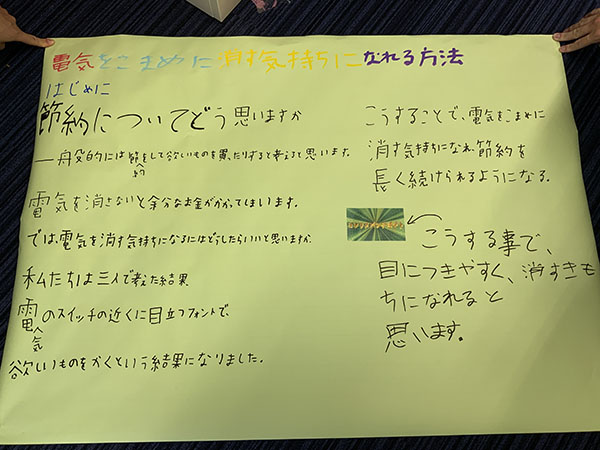 電気をこまめに消す気持ちになれる方法
はじめに
節約についてどう思いますか
一般的には節約をして欲しいものを買ったりすると考えると思います。
電気を消さないと余分なお金がかかってしまいます。
では、電気を消す気持ちになるにはどうしたらいいと思いますか。
私たちは三人で考えた結果
電気のスイッチの近くに目立つフォントで、
欲しいものをかくという結果になりました。
こうすることで、電気をこまめに
消す気持ちになれ、節約を
長く続けられるようになる。
こうする事で、
目につきやすく、消すきも
ちになれると
思います。